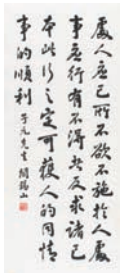 處人應己所不欲不施於人處
事應行有不得者反求諸己
本此行之定可獲人的同情
事的順利 子元先生 閻錫山